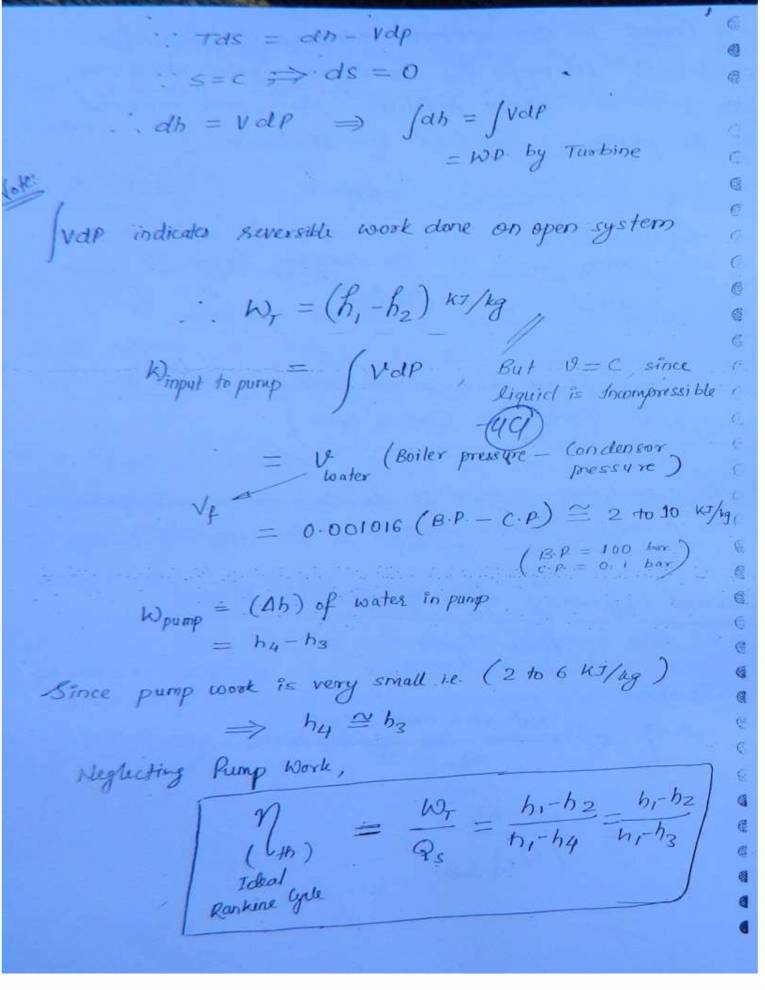 ∵ Tds = dh - Vdp
∵ s=c ⇒ ds = 0
∴ dh = VdP ⇒ ∫dh = ∫VdP
= WD. by Turbine
Note:
∫VdP indicates reversible work done on open system
∴ W_T = (h₁-h₂) KJ/kg
W input to pump = ∫VdP, But ϑ=C, since
liquid is Incompressible
49
= v water (Boiler pressure - Condensor pressure)
V_f
= 0.001016 (B.P - C.P) ≅ 2 to 10 KJ/kg
(B.P = 100 bar
C.P. = 0.1 bar)
W pump = (Δh) of water in pump
= h₄-h₃
Since pump work is very small i.e. (2 to 6 KJ/kg)
⇒ h₄ ≅ h₃
Neglecting Pump Work,
η(th) = W_T/Q_S = h₁-h₂/h₁-h₄ = h₁-h₂/h₁-h₃
Ideal
Rankine Cycle